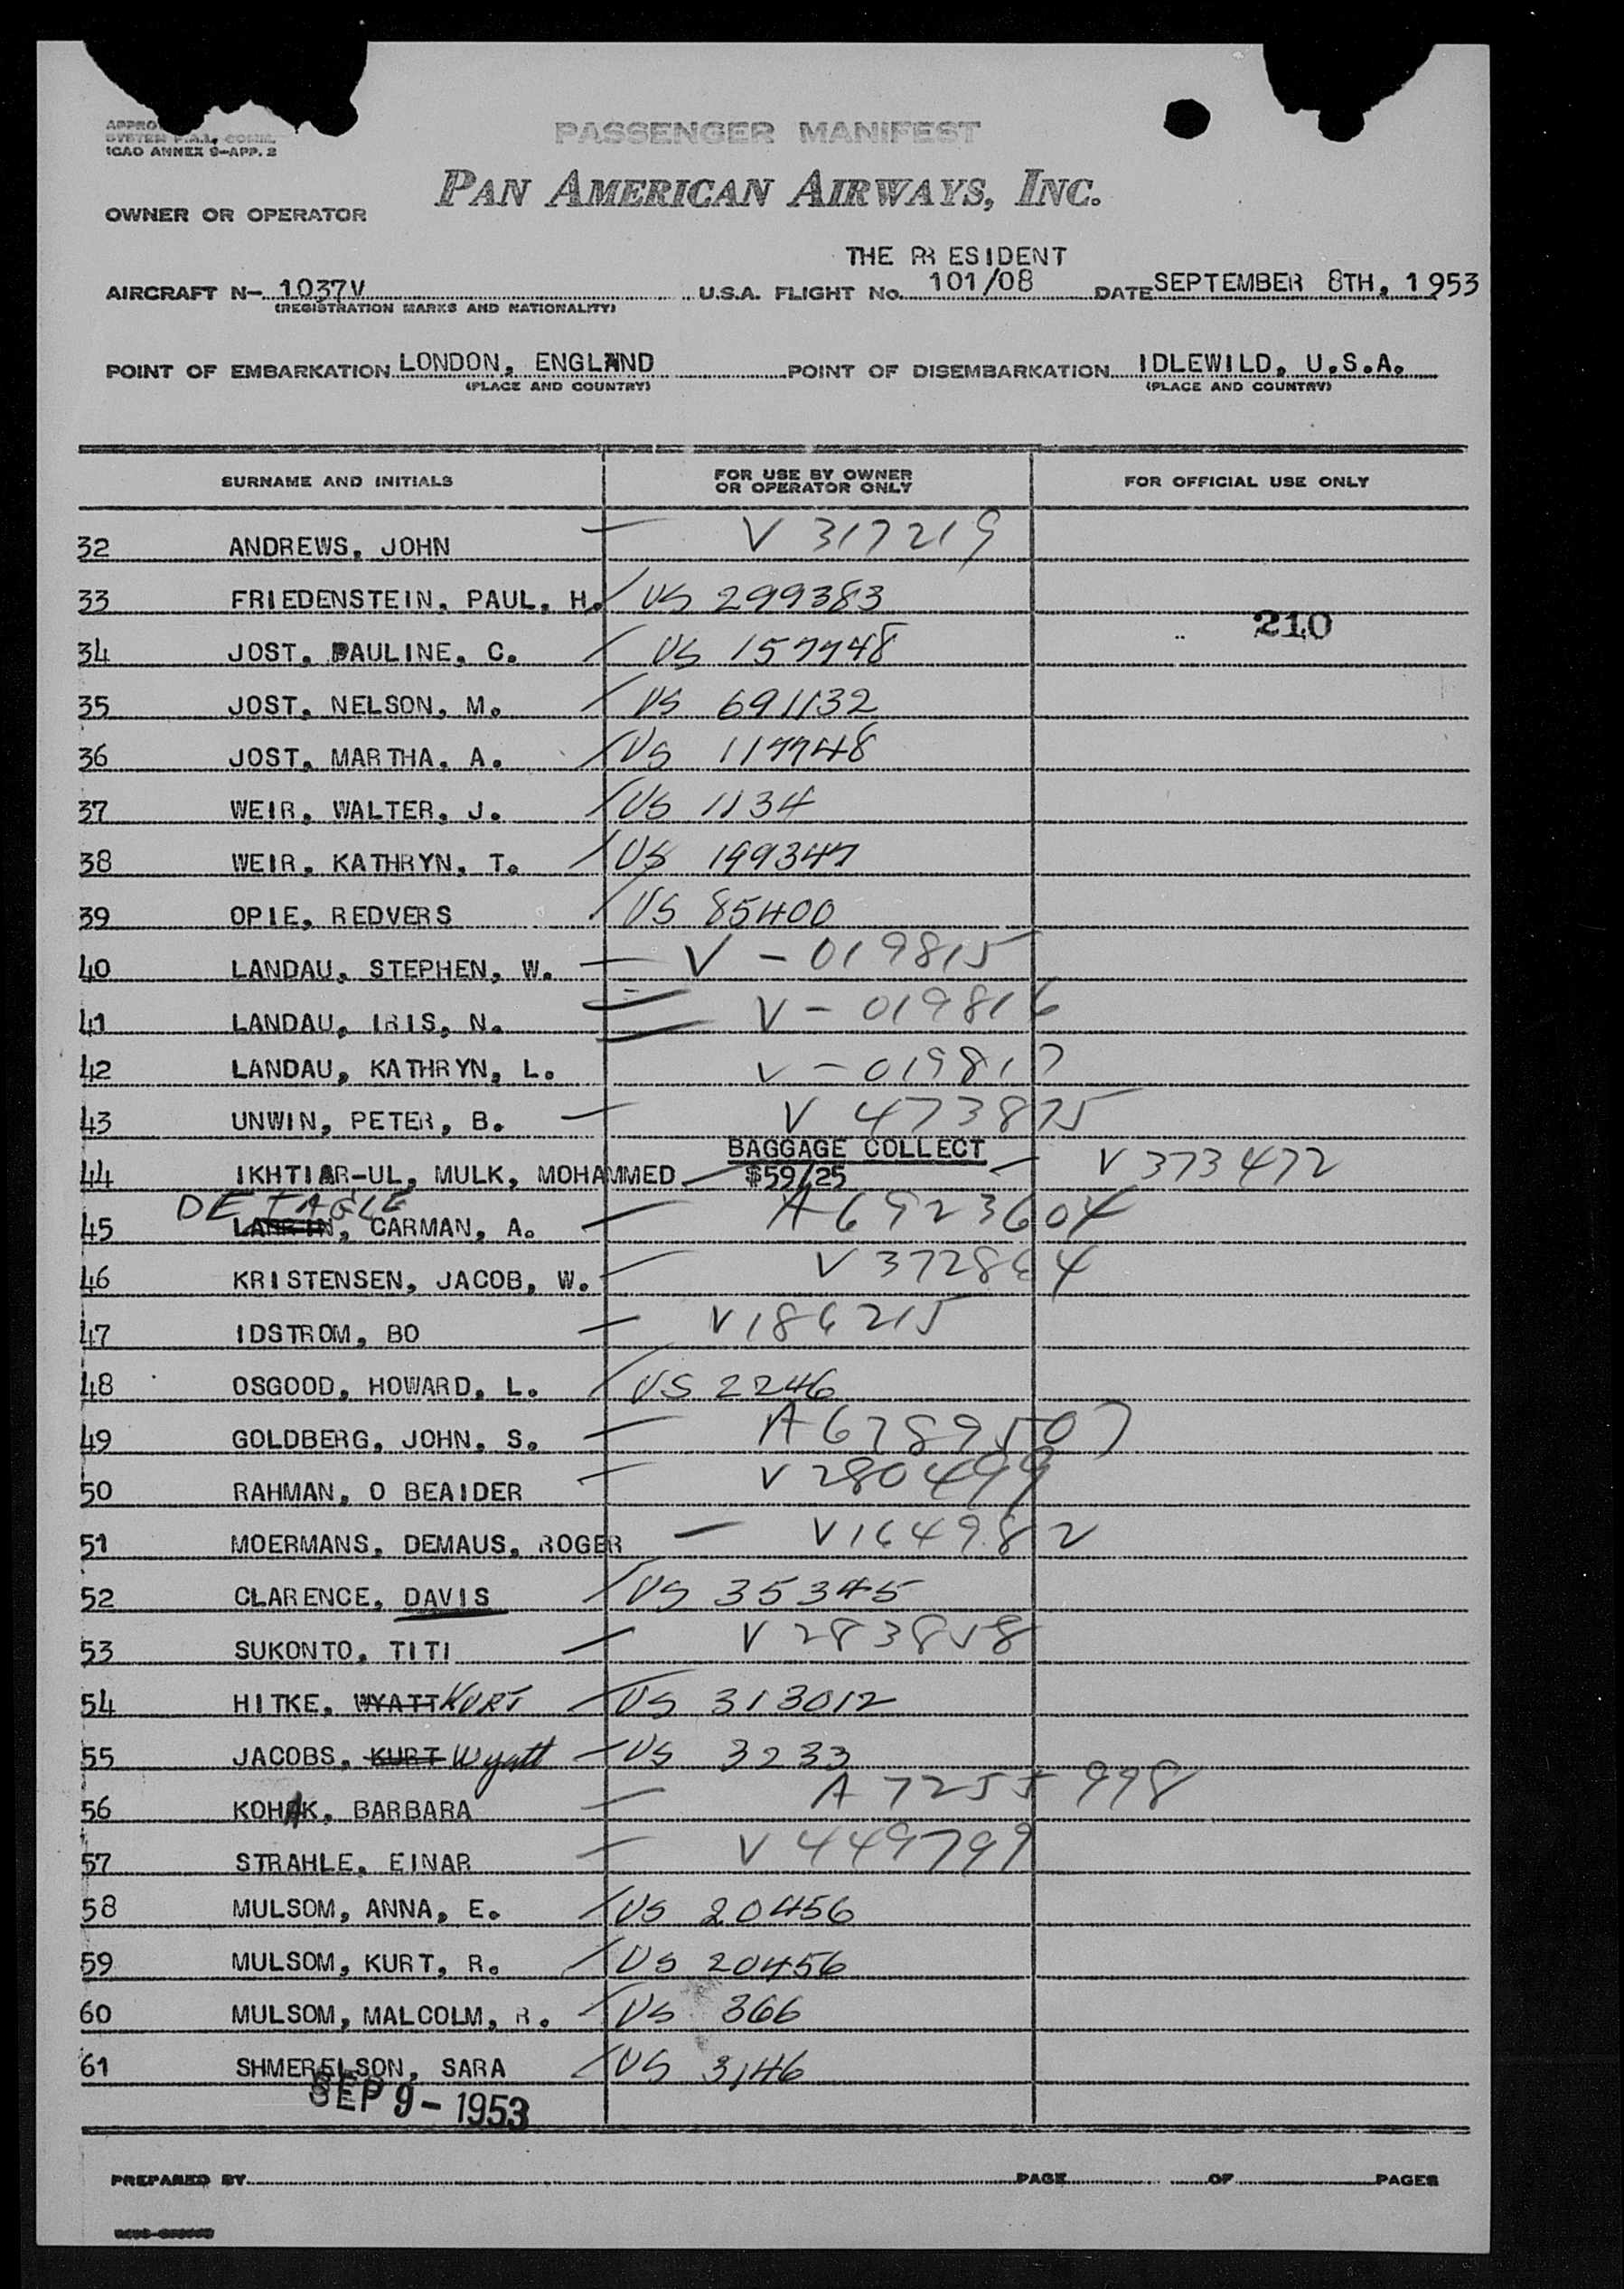 PASSENGER MANIFEST
ICAO ANNEX 9-APP. 2
PAN AMERICAN AIRWAYS, INC.
OWNER OR OPERATOR
THE PRESIDENT
AIRCRAFT N- 1037V U.S.A. FLIGHT No. 101/08 DATE SEPTEMBER 8TH, 1953
(REGISTRATION MARKS AND NATIONALITY)
POINT OF EMBARKATION LONDON, ENGLAND POINT OF DISEMBARKATION IDLEWILD, U.S.A.
(PLACE AND COUNTRY) (PLACE AND COUNTRY)
SURNAME AND INITIALS FOR USE BY OWNER OR OPERATOR ONLY FOR OFFICIAL USE ONLY
32 ANDREWS, JOHN — V 317219
33 FRIEDENSTEIN, PAUL, H. / US 299383
210
34 JOST, PAULINE, C. / US 157748
35 JOST, NELSON, M. / US 691132
36 JOST, MARTHA, A. / US 117748
37 WEIR, WALTER, J. / US 1134
38 WEIR, KATHRYN, T. / US 199347
39 OPIE, REDVERS / US 85400
40 LANDAU, STEPHEN, W. — V - 019815
41 LANDAU, IRIS, N. — V - 019816
42 LANDAU, KATHRYN, L. V - 019817
43 UNWIN, PETER, B. — V 473875
BAGGAGE COLLECT
44 IKHTIAR-UL, MULK, MOHAMMED — $59/25 — V 373472
DETAGLE
45 CARMAN, A. — A6923604
46 KRISTENSEN, JACOB, W. — V 372864
47 IDSTROM, BO — V 186215
48 OSGOOD, HOWARD, L. / US 2246
49 GOLDBERG, JOHN, S. — A6789507
50 RAHMAN, O BEAIDER — V 280499
51 MOERMANS, DEMAUS, ROGER — V 164982
52 CLARENCE, DAVIS / US 35345
53 SUKONTO, TITI — V 283858
54 HITKE, WYATT KURT / US 313012
55 JACOBS, KURT Wyatt — US 3233
56 KOHAK, BARBARA — A 7255998
57 STRAHLE, EINAR — V 449799
58 MULSOM, ANNA, E. / US 20456
59 MULSOM, KURT, R. / US 20456
60 MULSOM, MALCOLM, R. / US 366
61 SHMERELSON, SARA / US 3146
SEP 9 - 1953
PREPARED BY PAGE OF PAGES